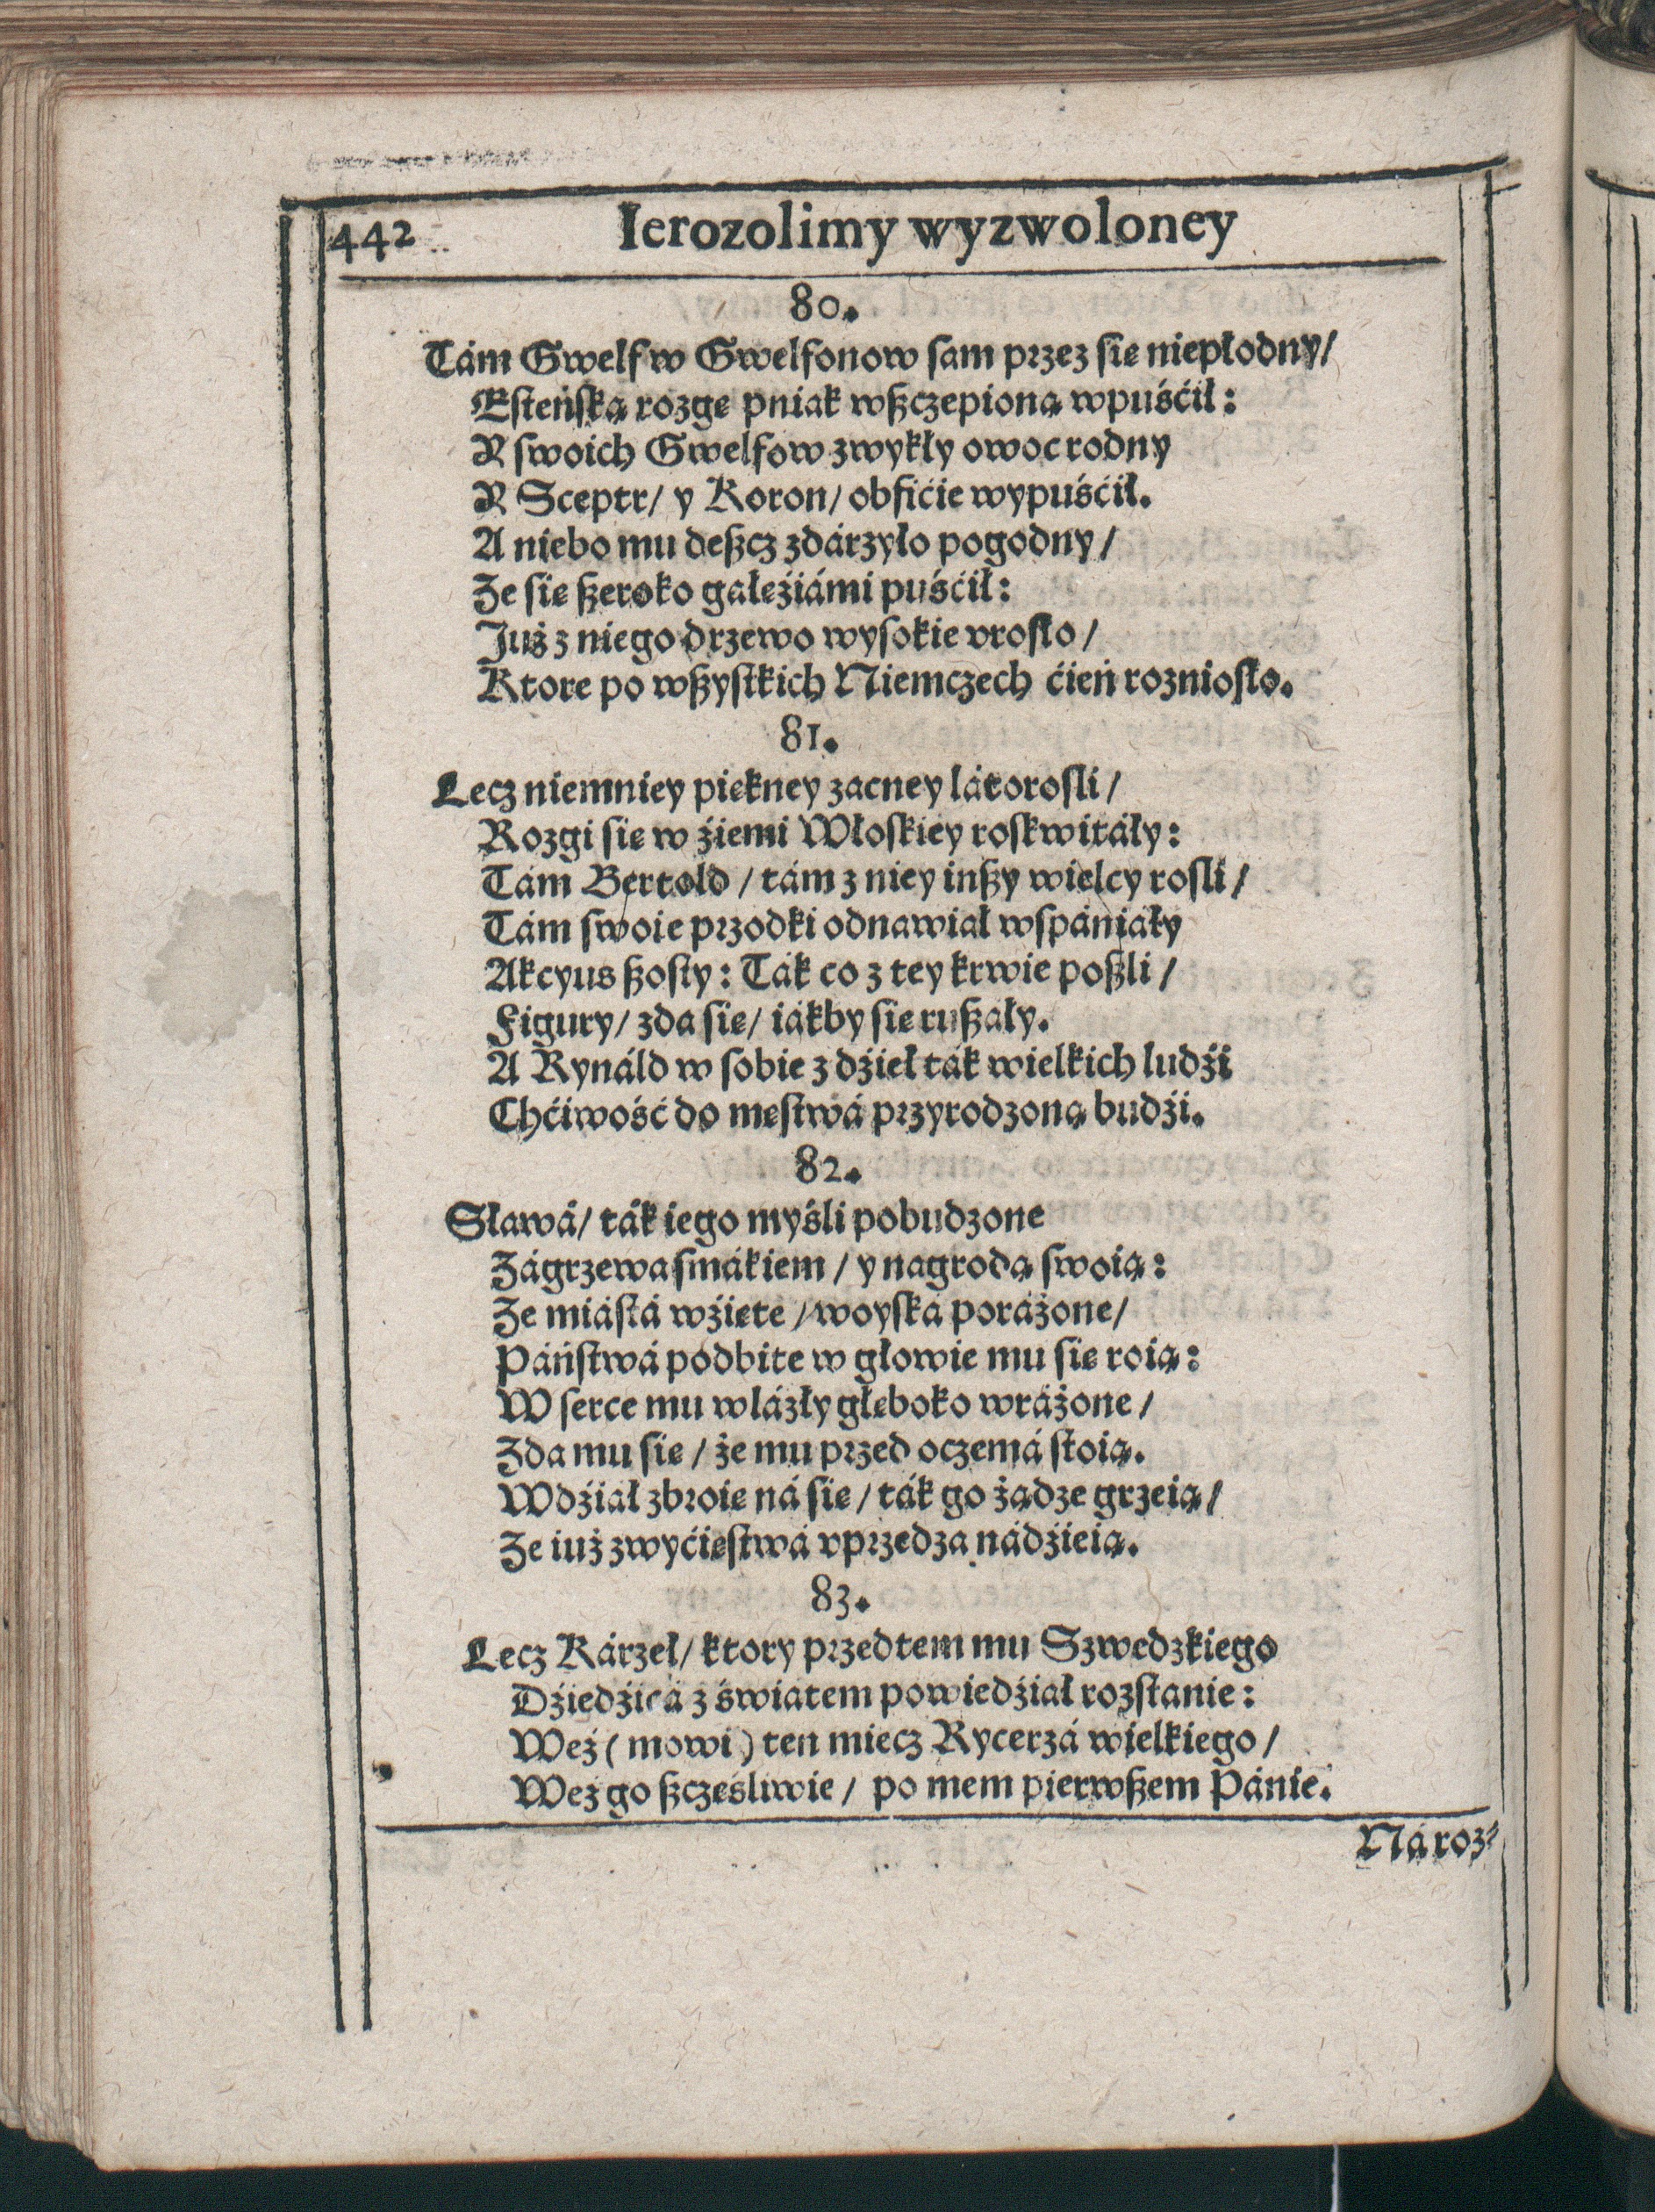 442 Ierozolimy wyzwoloney
80.
Tám Gwelf w Gwelfonow sam przez się niepłodny/
Esteńską rozgę pniak wszczepioną wpuśćił:
Y swoich Gwelfow zwykły owoc rodny
Y Sceptr/ y Koron/ obfićie wypuśćił.
A niebo mu deszcz zdárzyło pogodny/
Ze się szeroko gałęźiámi puśćił:
Już z niego drzewo wysokie vrosło/
Ktore po wszystkich Niemczech ćień rozniosło.
81.
Lecz niemniey piękney zacney látorosli/
Rozgi się w źiemi Włoskiey roskwitáły:
Tám Bertold/ tám z niey inszy wielcy rosli/
Tám swoie przodki odnawiał wspániáły
Akcyus szosty: Ták co z tey krwie poszli/
Figury/ zda się/ iákby się ruszały.
A Rynáld w sobie z dźieł ták wielkich ludźi
Chćiwość do męstwá przyrodzoną budźi.
82.
Sławá/ ták iego myśli pobudzone
Zágrzewa smákiem/ y nagrodą swoią:
Ze miástá wźięte/ woyská poráżone/
Páństwá podbite w głowie mu się roią:
W serce mu wlázły głęboko wráżone/
Zda mu się/ że mu przed oczemá stoią.
Wdźiał zbroię ná się/ ták go żądze grzeią/
Ze iuż zwyćięstwá vprzedza nádźieią.
83.
Lecz Kárzeł/ ktory przedtem mu Szwedzkiego
Dźiedźicá z światem powiedźiał rozstanie:
Weź (mowi) ten miecz Rycerzá wielkiego/
Weź go szczęśliwie/ po mem pierwszem Pánie.
Ná roz-